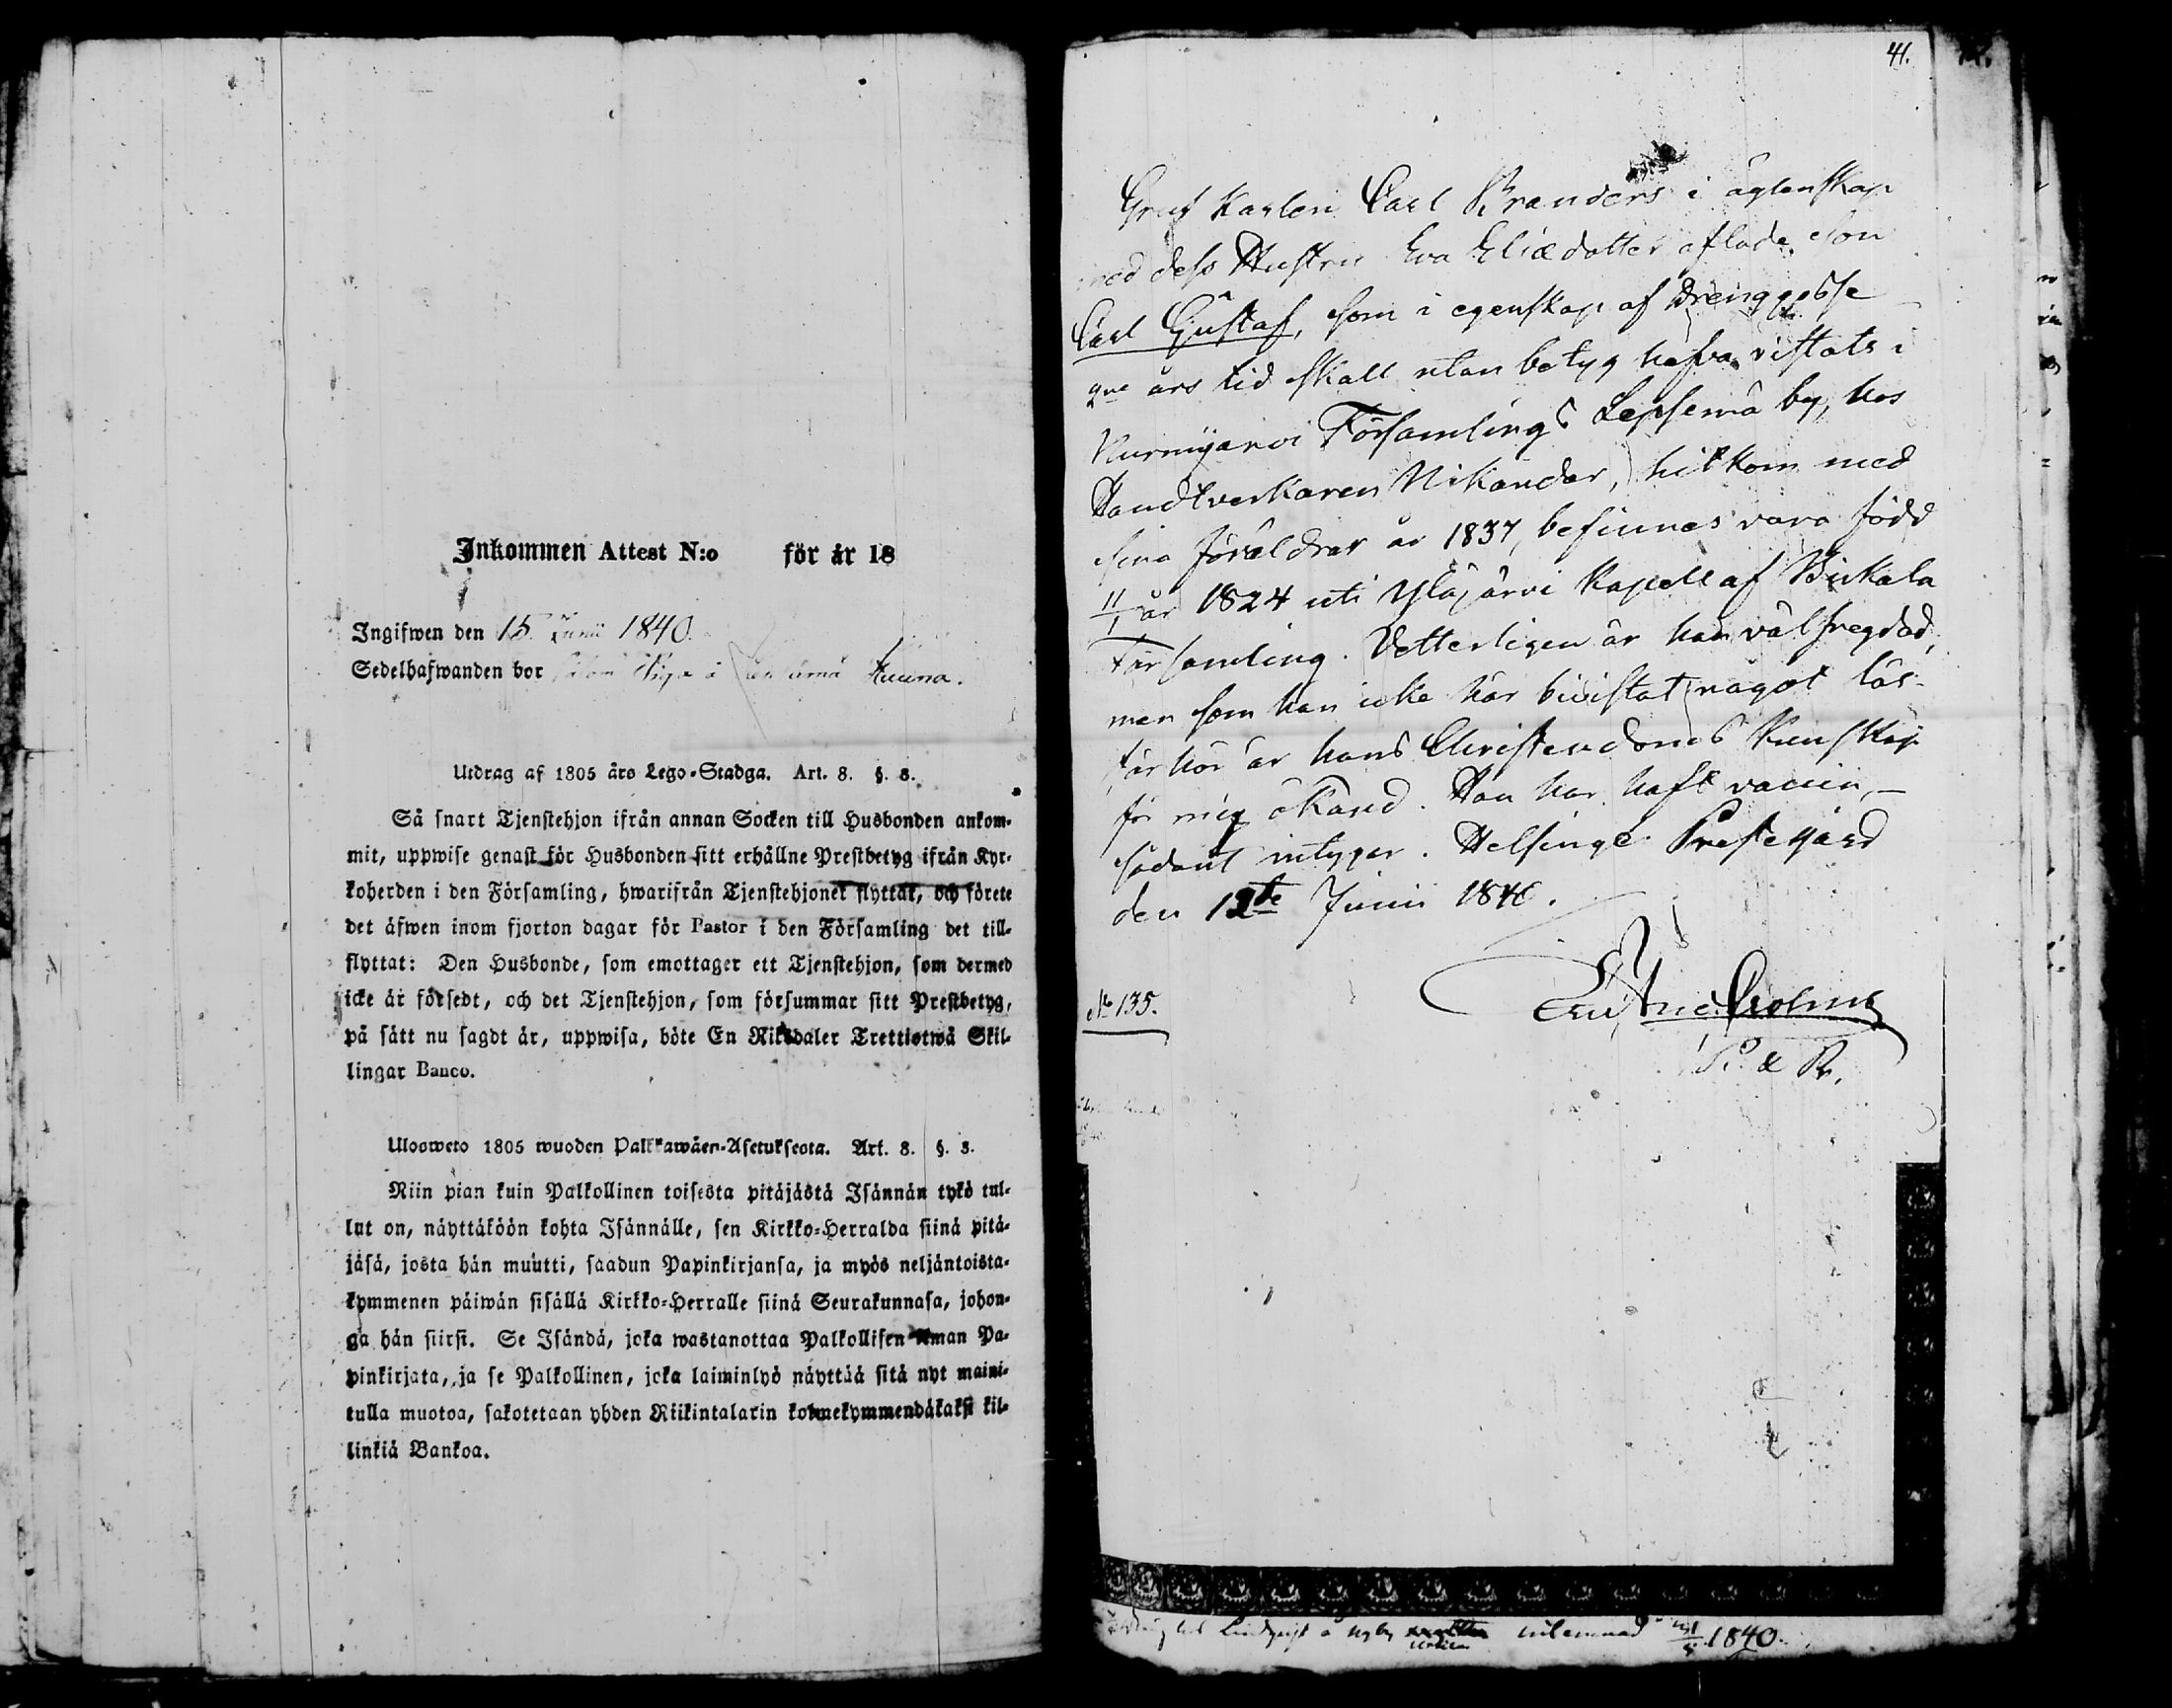 Inkommen Attest N:o för år 18
Ingifwen den 15 Junii 1840.
Sedelhafwanden bor som Piga å
Utdrag af 1805 års Lego-Stadga. Art. 8. §. 3.
Så snart Tjenstehjon ifrån annan Socken till Husbonden ankom-
mit, uppwise genast för Husbonden sitt erhållne Prestbetyg ifrån Kyr-
koherden i den Församling, hwarifrån Tjenstehjonet flyttat, och förete
det äfwen inom fjorton dagar för Pastor i den Församling det till-
flyttat: Den Husbonde, som emottager ett Tjenstehjon, som dermed
icke är försedt, och det Tjenstehjon, som försummar sitt Prestbetyg,
på sätt nu sagdt är, uppwisa, böte En Riksdaler Trettiotwå Skil-
lingar Banco.
Ulosweto 1805 wuoden Palkkawäen-Asetuksesta. Art. 8. §. 3.
Niin pian kuin Palkollinen toisesta pitäjästä Isännän tykö tul-
lut on, näyttäköön kohta Isännälle, sen Kirkko-Herralda siinä pitä-
jäsä, josta hän muutti, saadun Papinkirjansa, ja myös neljäntoista-
kymmenen päiwän sisällä Kirkko-Herralle siinä Seurakunnasa, johon-
ga hän siirsi. Se Isändä, joka wastanottaa Palkollisen ilman Pa-
pinkirjata, ja se Palkollinen, joka laiminlyö näyttää sitä nyt maini-
tulla muotoa, sakotetaan yhden Riikintalarin kolmekymmendäkaksi kil-
linkiä Bankoa.
41.
Gruf Karlen Carl Branders i ägtenskap
med dess Hustru Eva Eliædotter aflade Son
Carl Gustaf, som i egenskap af Drenggosse
2ne års tid skall utan betyg hafva vistats i
Nurmijarvi Församlings Lepsemä by, hos
Handtverkaren Nikander, hitkom med
sina föräldrar år 1837, befinnes vara född
11/1 år 1824 uti Ylöjärvi Kapell af Birkala
Församling. Vetterligen är han välfregdad,
men som han icke här bivistat något läs-
förhör är hans Christendoms Kunskap
för mig okänd. Han har haft vaccin,
sådant intygar. Helsinge Prestegård
den 12te Junii 1840.
N 135.
P. & Pr.
Lindqvist å Nyby inlemnad 1840.